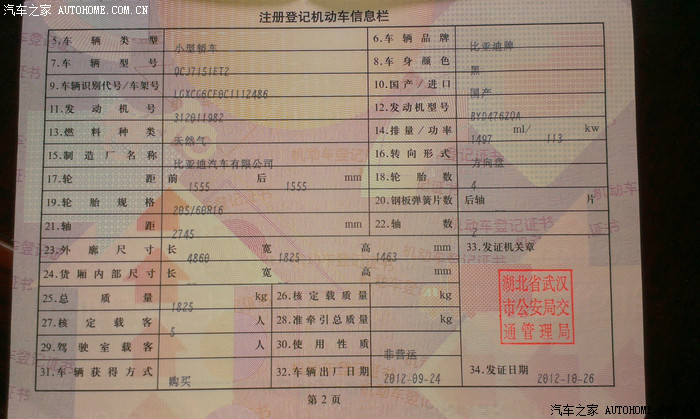 汽车之家 AUTOHOME.COM.CN
注册登记机动车信息栏
5.车辆类型 小型轿车 6.车辆品牌 比亚迪牌
7.车辆型号 QCJ7151ET2 8.车身颜色 黑
9.车辆识别代号/车架号 LGXC66CF0C1112486 10.国产/进口 国产
11.发动机号 312011982 12.发动机型号 BYD476ZQA
13.燃料种类 天然气 14.排量/功率 1497 ml/ 113 kw
15.制造厂名称 比亚迪汽车有限公司 16.转向形式 方向盘
17.轮距 前 1555 后 1555 mm 18.轮胎数 4
19.轮胎规格 205/60R16 20.钢板弹簧片数 后轴 片
21.轴距 2745 mm 22.轴数 2
23.外廓尺寸 长 4860 宽 1825 高 1463 mm 33.发证机关章
24.货厢内部尺寸 长 宽 高 mm
25.总质量 1825 kg 26.核定载质量 kg
27.核定载客 5 人 28.准牵引总质量 kg
29.驾驶室载客 人 30.使用性质 非营运
31.车辆获得方式 购买 32.车辆出厂日期 2012-09-24 34.发证日期 2012-10-26
湖北省武汉
市公安局交
通管理局
第2页
汽车之家 AUTOHOME.COM.CN